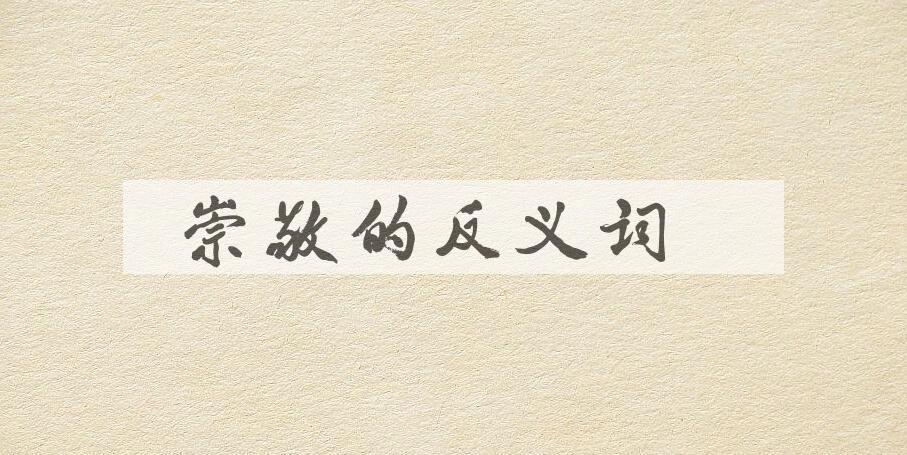 崇敬的反义词